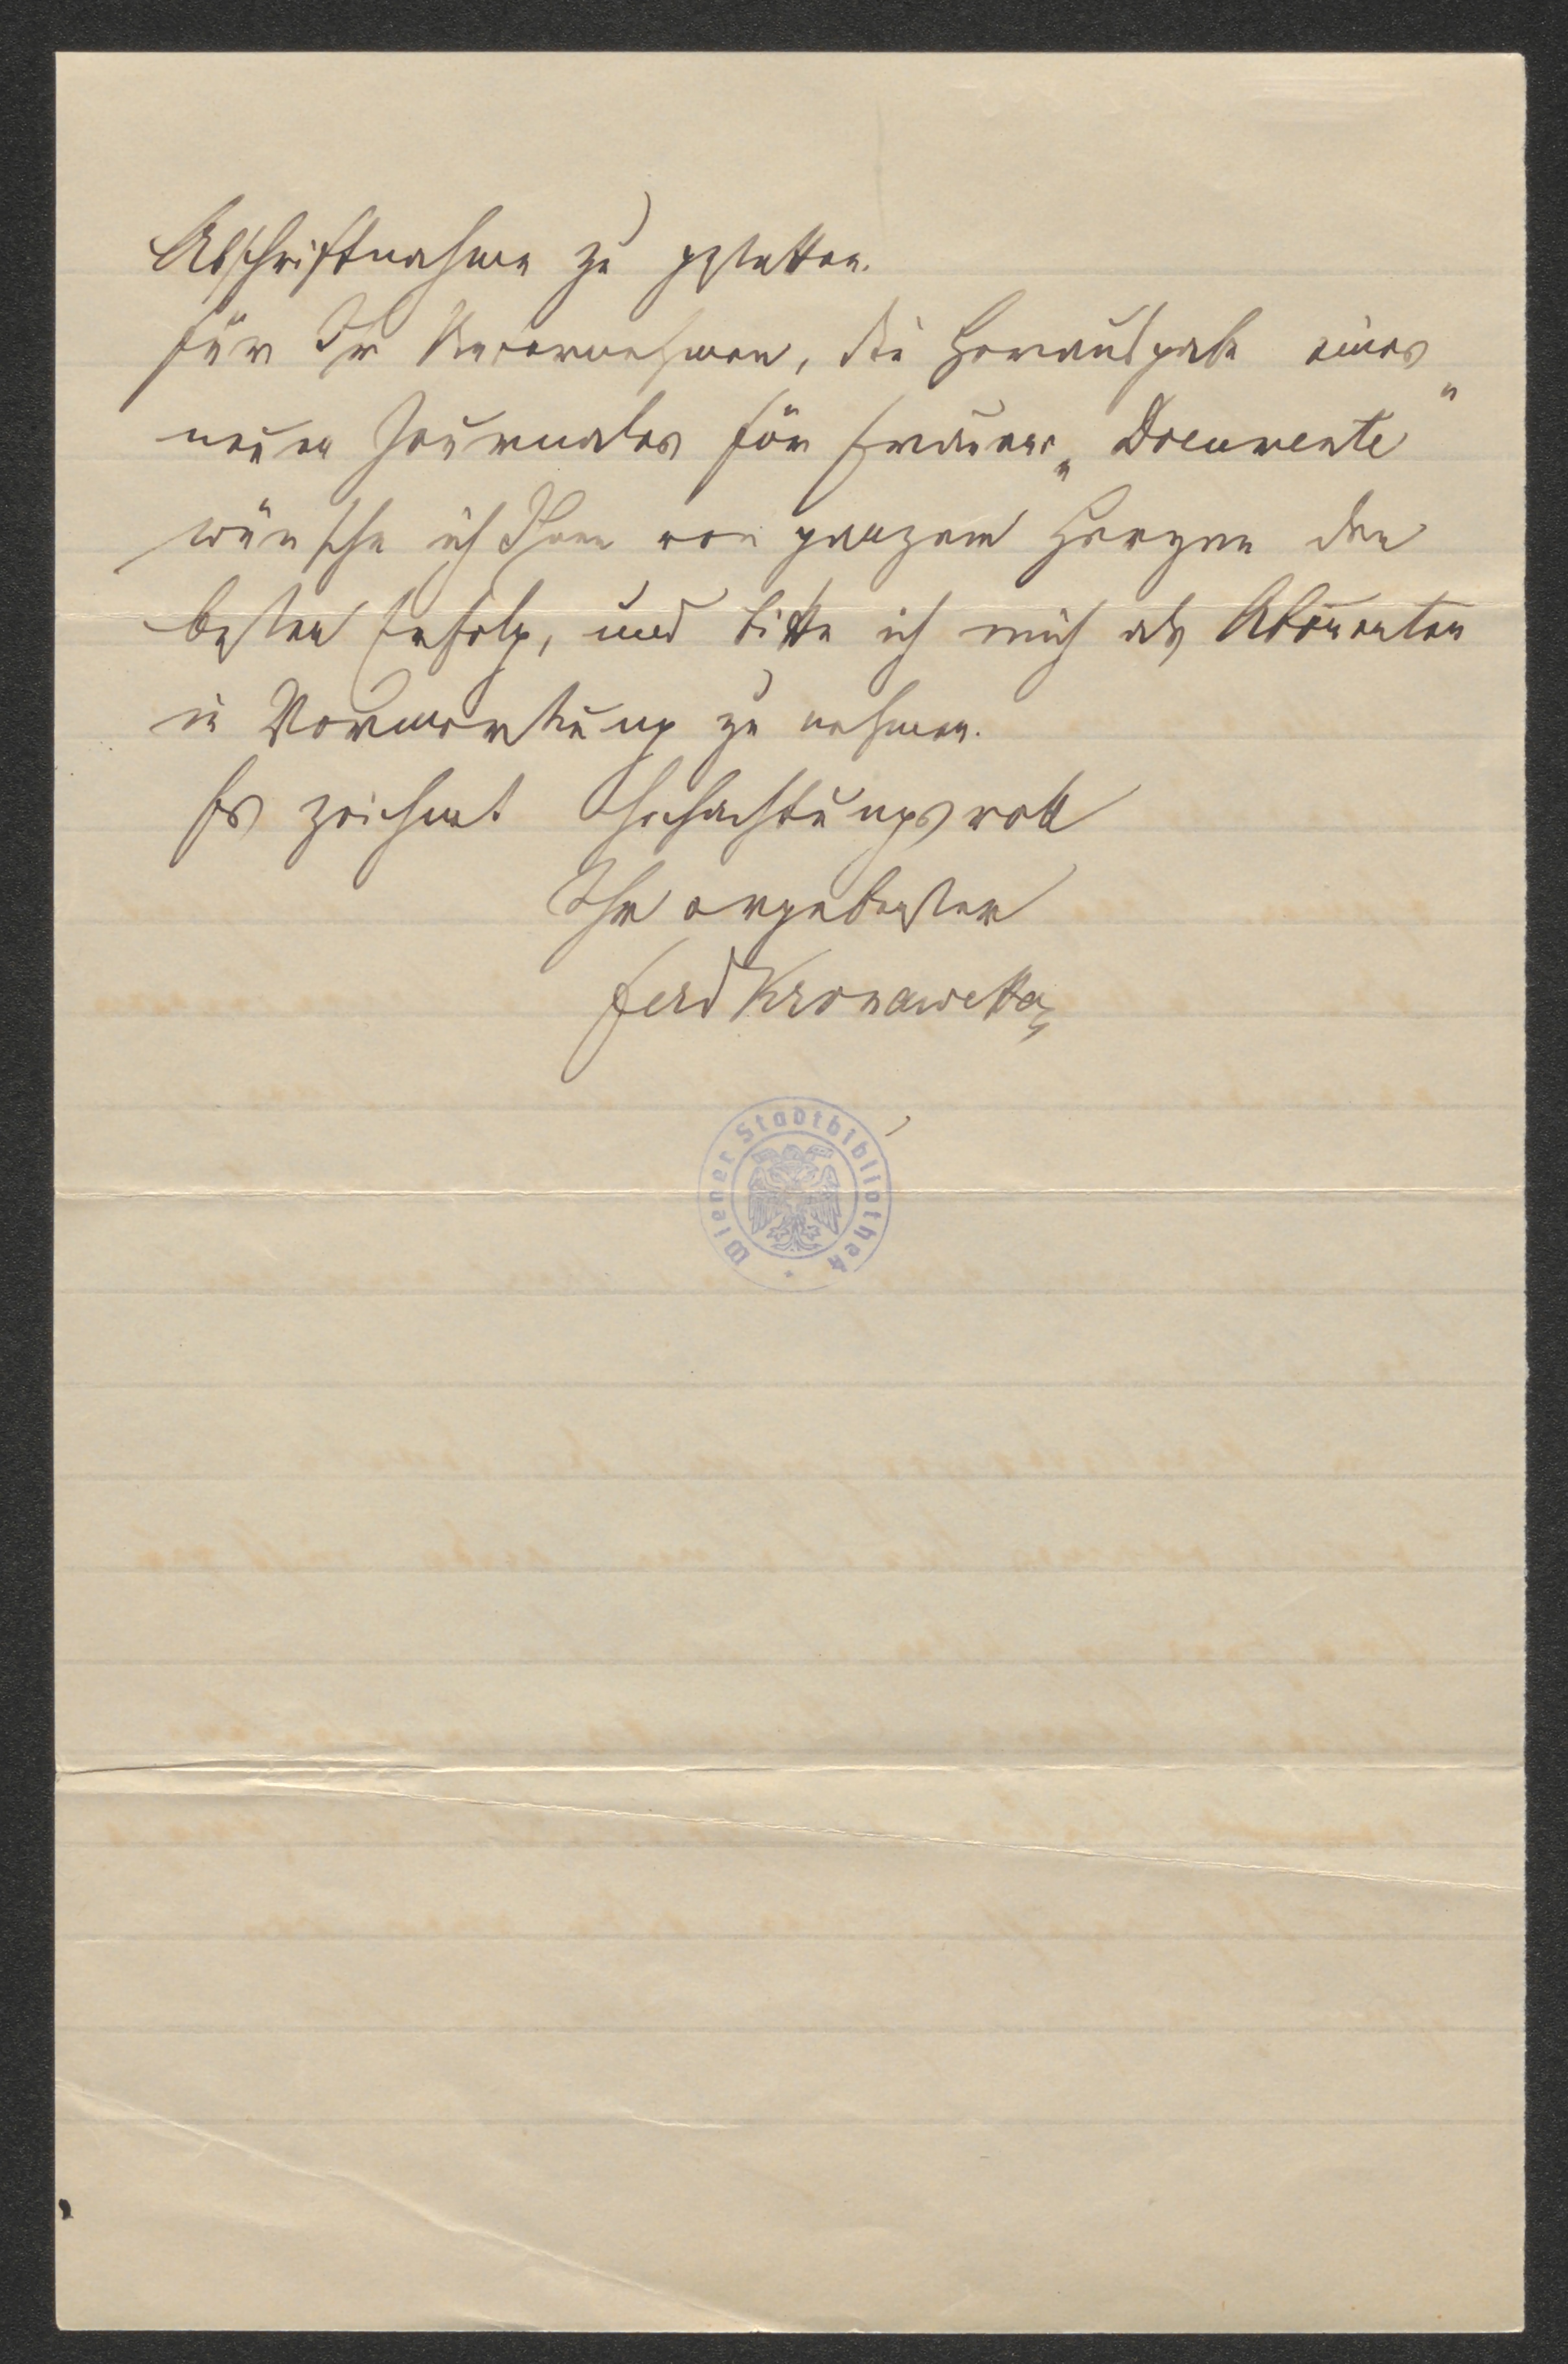 Abschriftnahme zu gestatten.
für Ihr Unternehmen, die Herausgabe eines
neuen Journales für Frauen „Documente"
wünsche ich Ihnen von ganzem Herzen den
besten Erfolg, und bitte ich mich als Abonenten
in Vormerkung zu nehmen.
Es zeichnet Hochachtungsvoll
Ihr ergebenster
Ferd Kronawetter
Wiener Stadtbibliothek